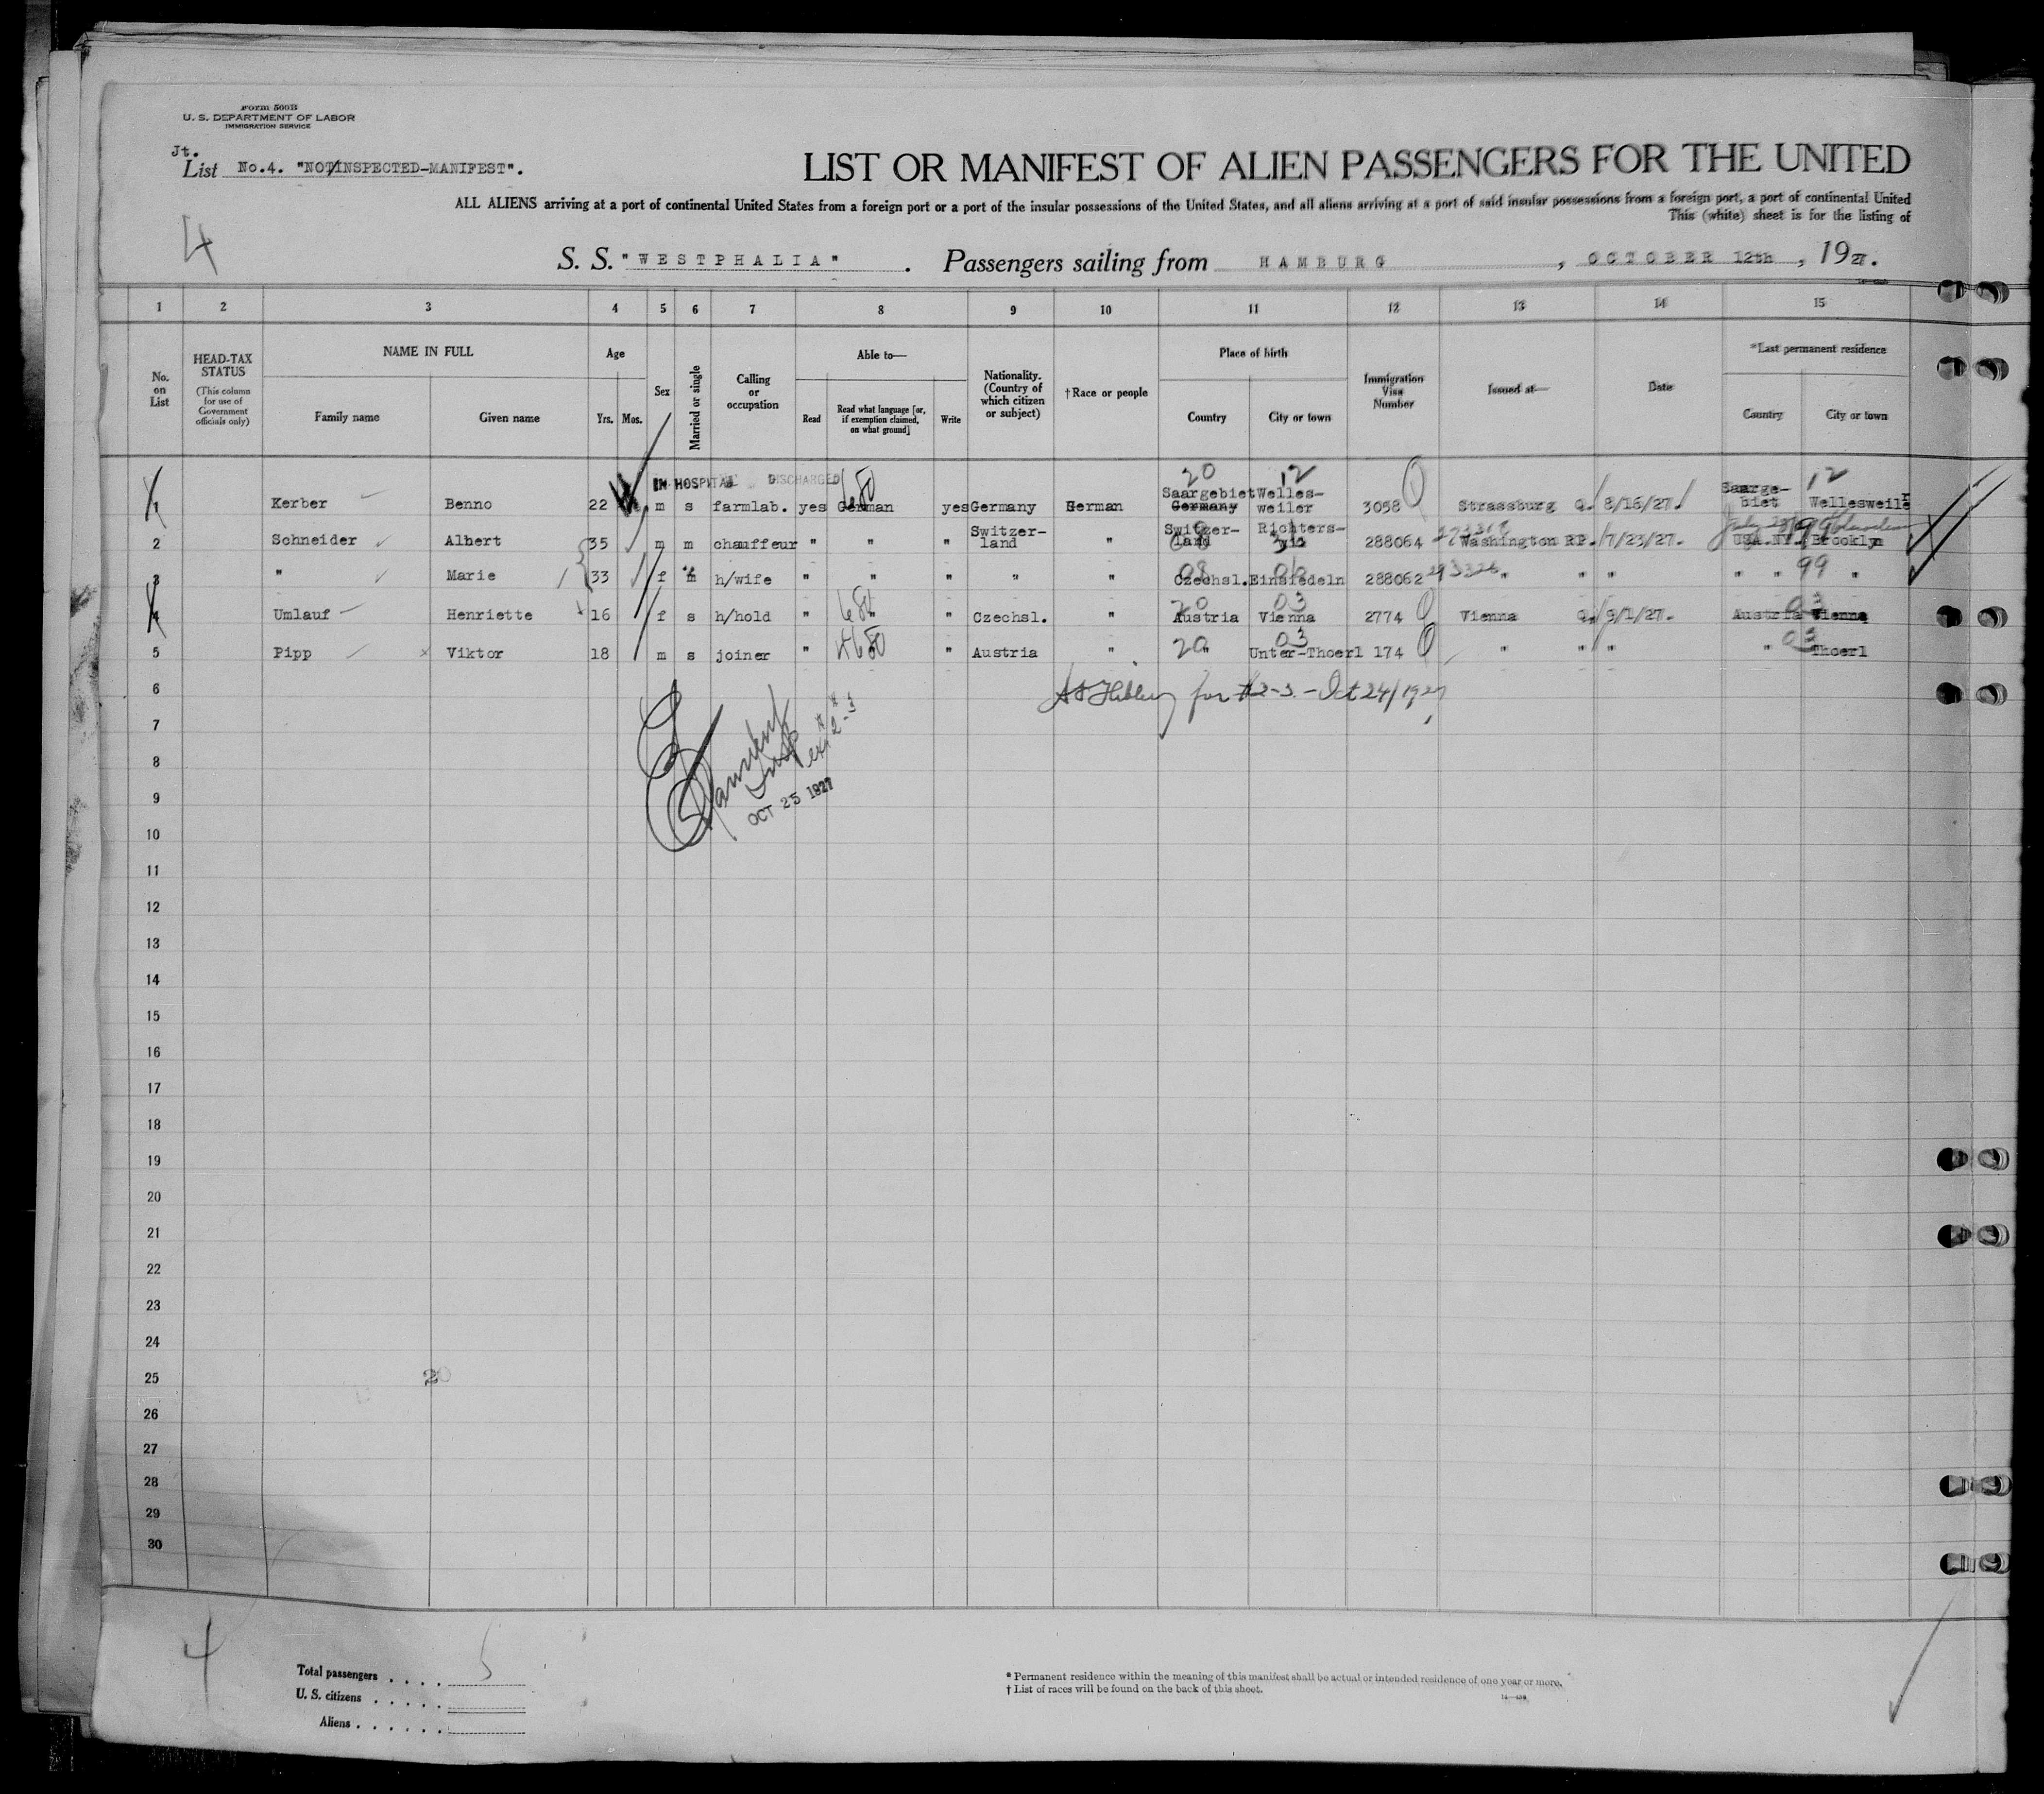 Form 500B
U. S. DEPARTMENT OF LABOR
IMMIGRATION SERVICE
Jt.
List No.4. "NOT/INSPECTED-MANIFEST".
4
LIST OR MANIFEST OF ALIEN PASSENGERS FOR THE UNITED
ALL ALIENS arriving at a port of continental United States from a foreign port or a port of the insular possessions of the United States, and all aliens arriving at a port of said insular possessions from a foreign port, a port of continental United
This (white) sheet is for the listing of
S. S. "WESTPHALIA". Passengers sailing from HAMBURG, OCTOBER 12th, 1927.
1 2 3 4 5 6 7 8 9 10 11 12 13 14 15
No. on List
HEAD-TAX STATUS
(This column for use of Government officials only)
NAME IN FULL
Family name
Given name
Age
Yrs. Mos.
Sex
Married or single
Calling or occupation
Able to—
Read
Read what language [or, if exemption claimed, on what ground]
Write
Nationality. (Country of which citizen or subject)
†Race or people
Place of birth
Country
City or town
Immigration Visa Number
Issued at—
Date
*Last permanent residence
Country
City or town
IN HOSPITAL DISCHARGED 20 12 12
1 Kerber Benno 22 m s farmlab. yes German yes Germany German Saargebiet Germany Welles-weiler 3058 Strassburg Q. 8/16/27. Saarge-biet Wellesweiler
2 Schneider Albert 35 m m chauffeur " " " Switzer-land " Switzer-land Richters-wil 288064 Washington RP. 7/23/27. USA.NY. Brooklyn
3 " Marie 33 f m h/wife " " " " " Czechsl. Einsiedeln 288062 " " " " " 99 "
4 Umlauf Henriette 16 f s h/hold " " " Czechsl. " Austria Vienna 2774 Vienna Q. 9/1/27. Austria Vienna
5 Pipp Viktor 18 m s joiner " " Austria " " Unter-Thoerl 174 " " " " Thoerl
6 for #2-3. - Oct 24/1927
7
Insp
ex 2-3
8
9 OCT 25 1927
10
11
12
13
14
15
16
17
18
19
20
21
22
23
24
25 20
26
27
28
29
30
4
Total passengers . . . . 5
U. S. citizens . . . . .
Aliens . . . . . .
* Permanent residence within the meaning of this manifest shall be actual or intended residence of one year or more.
† List of races will be found on the back of this sheet.